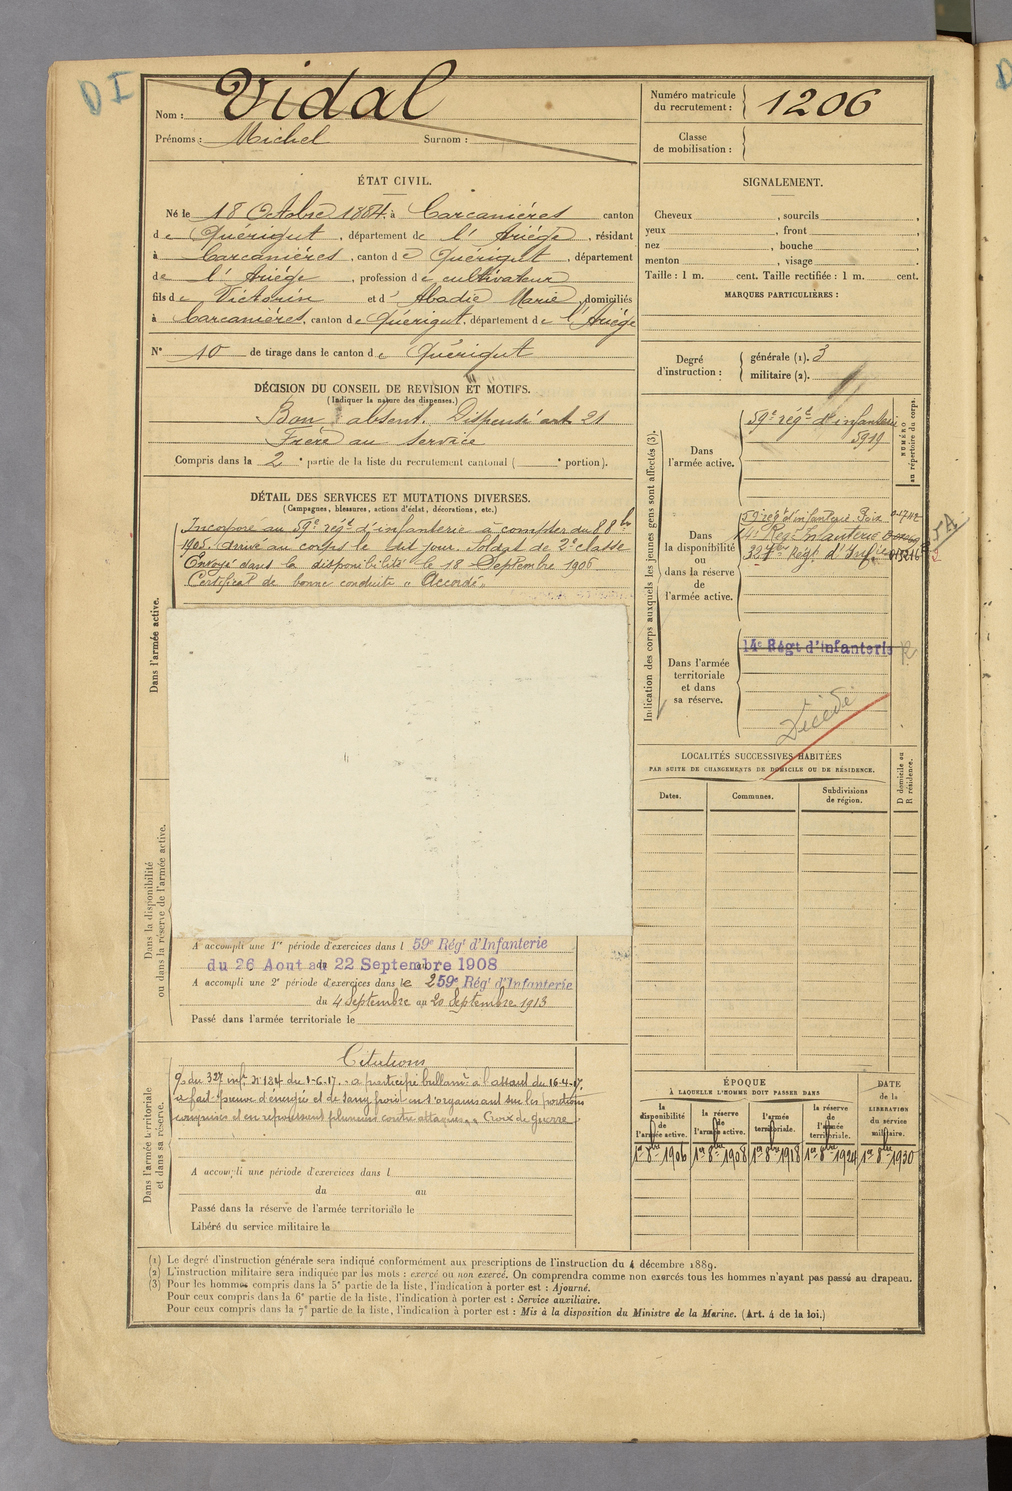 D I
Nom : Vidal
Prénoms : Michel Surnom :
Numéro matricule du recrutement : 1206
Classe de mobilisation :
ÉTAT CIVIL.
Né le 18 Octobre 1884 à Carcaniéres canton
de Quérigut, département de l'Ariége, résidant
à Carcaniéres, canton de Quérigut, département
de l'Ariége, profession de cultivateur
fils de Victorin et d' Abadie Marie, domiciliés
à Carcaniéres, canton de Quérigut, département de l'Ariége
N° 10 de tirage dans le canton de Quérigut
SIGNALEMENT.
Cheveux , sourcils ,
yeux , front ,
nez , bouche ,
menton , visage .
Taille : 1 m. cent. Taille rectifiée : 1 m. cent.
MARQUES PARTICULIÈRES :
Degré d'instruction : générale (1). 3
militaire (2).
DÉCISION DU CONSEIL DE REVISION ET MOTIFS.
(Indiquer la nature des dispenses.)
Bon absent. Dispensé art. 21
Frère au service
Compris dans la 2e partie de la liste du recrutement cantonal ( e portion).
DÉTAIL DES SERVICES ET MUTATIONS DIVERSES.
(Campagnes, blessures, actions d'éclat, décorations, etc.)
Incorporé au 59e régt d'infanterie à compter du 8 8bre
1905. Arrivé au corps le dit jour. Soldat de 2e classe
Envoyé dans la disponibilité le 18 Septembre 1906
Certificat de bonne conduite "Accordé"
Dans l'armée active.
Dans la disponibilité
ou dans la réserve de l'armée active.
A accompli une 1re période d'exercices dans l 59e Régt d'Infanterie
du 26 Aout au 22 Septembre 1908
A accompli une 2e période d'exercices dans le 259e Régt d'Infanterie
du 4 Septembre au 20 Septembre 1913
Passé dans l'armée territoriale le
Dans l'armée territoriale
et dans sa réserve.
Citations
du 327 infie N° 184 du 1-6-17. a participé brillamt à l'assaut du 16-4-17,
a fait preuve d'énergie et de sang froid en s'organisant sur les positions
conquises et en repoussant plusieurs contre attaques. Croix de guerre
A accompli une période d'exercices dans l
du au
Passé dans la réserve de l'armée territoriale le
Libéré du service militaire le
Indication des corps auxquels les jeunes gens sont affectés (3).
NUMÉRO
au répertoire du corps.
Dans l'armée active.
59e régt d'infanterie
5919
Dans la disponibilité ou dans la réserve de l'armée active.
59e régt d'infanterie
Régt Infanterie
327e Régt d'Infie
Dans l'armée territoriale et dans sa réserve.
14e Régt d'Infanterie
Décédé
LOCALITÉS SUCCESSIVES HABITÉES
PAR SUITE DE CHANGEMENTS DE DOMICILE OU DE RÉSIDENCE.
D domicile ou
R résidence.
Dates. Communes. Subdivisions de région.
ÉPOQUE
À LAQUELLE L'HOMME DOIT PASSER DANS
DATE de la LIBÉRATION du service militaire.
la disponibilité de l'armée active. la réserve de l'armée active. l'armée territoriale. la réserve de l'armée territoriale.
1er 8bre 1906 1er 8bre 1908 1er 8bre 1918 1er 8bre 1924 1er 8bre 1930
(1) Le degré d'instruction générale sera indiqué conformément aux prescriptions de l'instruction du 4 décembre 1889.
(2) L'instruction militaire sera indiquée par les mots : exercé ou non exercé. On comprendra comme non exercés tous les hommes n'ayant pas passé au drapeau.
(3) Pour les hommes compris dans la 5e partie de la liste, l'indication à porter est : Ajourné.
Pour ceux compris dans la 6e partie de la liste, l'indication à porter est : Service auxiliaire.
Pour ceux compris dans la 7e partie de la liste, l'indication à porter est : Mis à la disposition du Ministre de la Marine. (Art. 4 de la loi.)